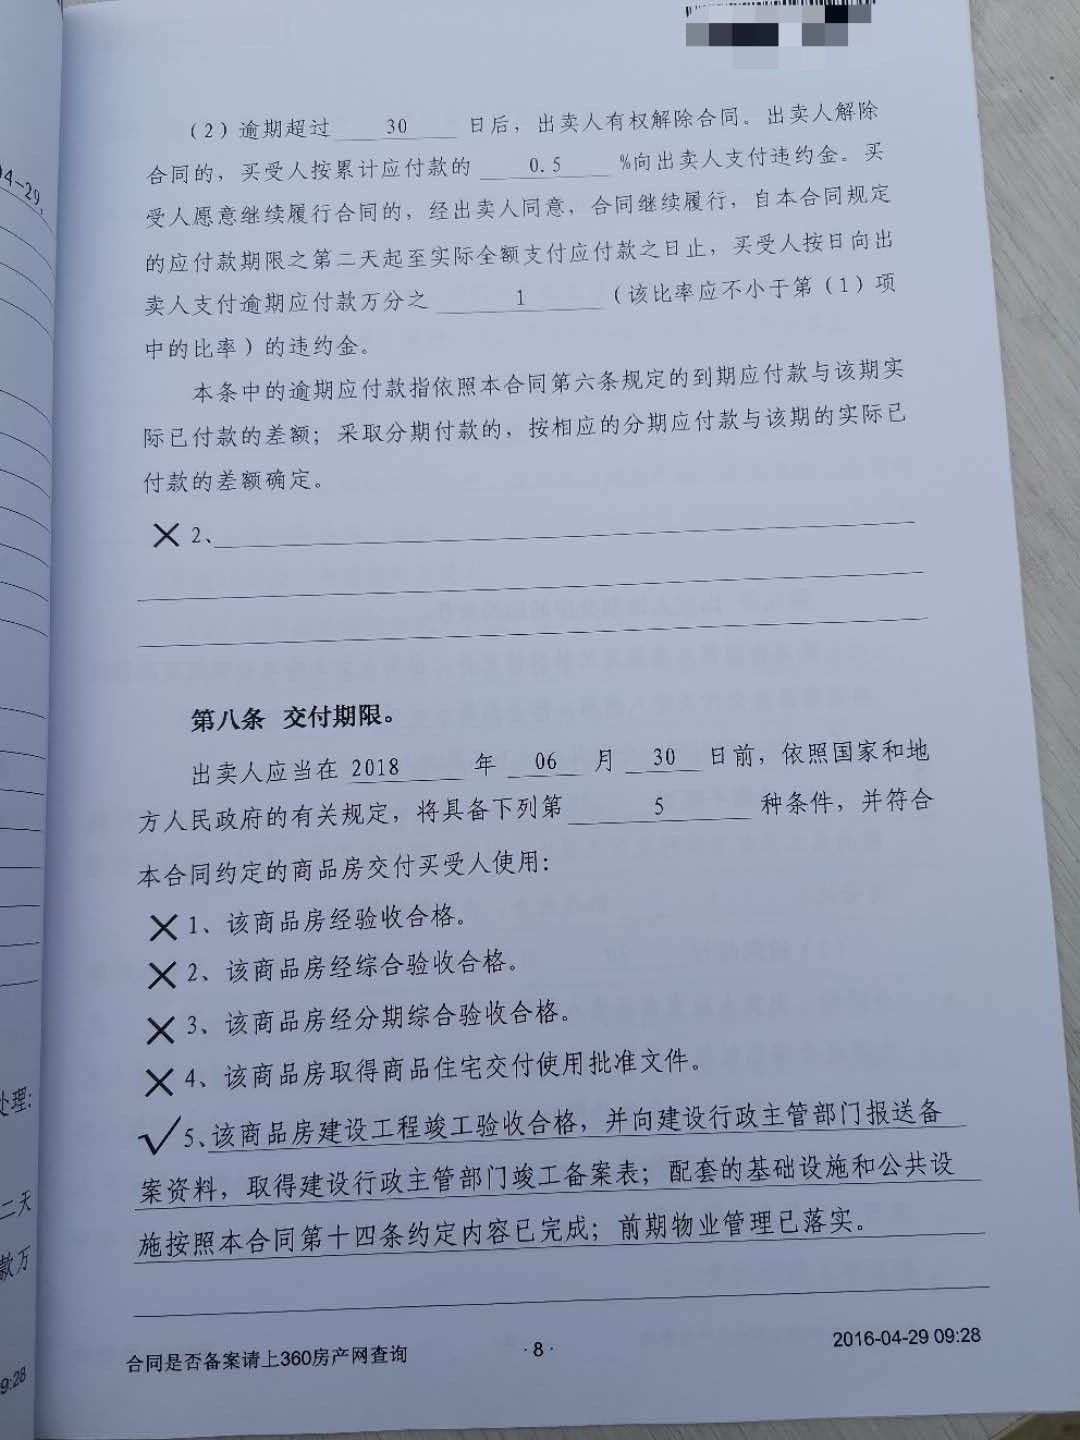 （2）逾期超过 30 日后，出卖人有权解除合同。出卖人解除
合同的，买受人按累计应付款的 0.5 %向出卖人支付违约金。买
受人愿意继续履行合同的，经出卖人同意，合同继续履行，自本合同规定
的应付款期限之第二天起至实际全额支付应付款之日止，买受人按日向出
卖人支付逾期应付款万分之 1 （该比率应不小于第（1）项
中的比率）的违约金。
本条中的逾期应付款指依照本合同第六条规定的到期应付款与该期实
际已付款的差额；采取分期付款的，按相应的分期应付款与该期的实际已
付款的差额确定。
2、
第八条 交付期限。
出卖人应当在 2018 年 06 月 30 日前，依照国家和地
方人民政府的有关规定，将具备下列第 5 种条件，并符合
本合同约定的商品房交付买受人使用：
1、该商品房经验收合格。
2、该商品房经综合验收合格。
3、该商品房经分期综合验收合格。
4、该商品房取得商品住宅交付使用批准文件。
5、该商品房建设工程竣工验收合格，并向建设行政主管部门报送备
案资料，取得建设行政主管部门竣工备案表；配套的基础设施和公共设
施按照本合同第十四条约定内容已完成；前期物业管理已落实。
合同是否备案请上360房产网查询
·8·
2016-04-29 09:28
04-29,
处理:
二天
款万
9:28